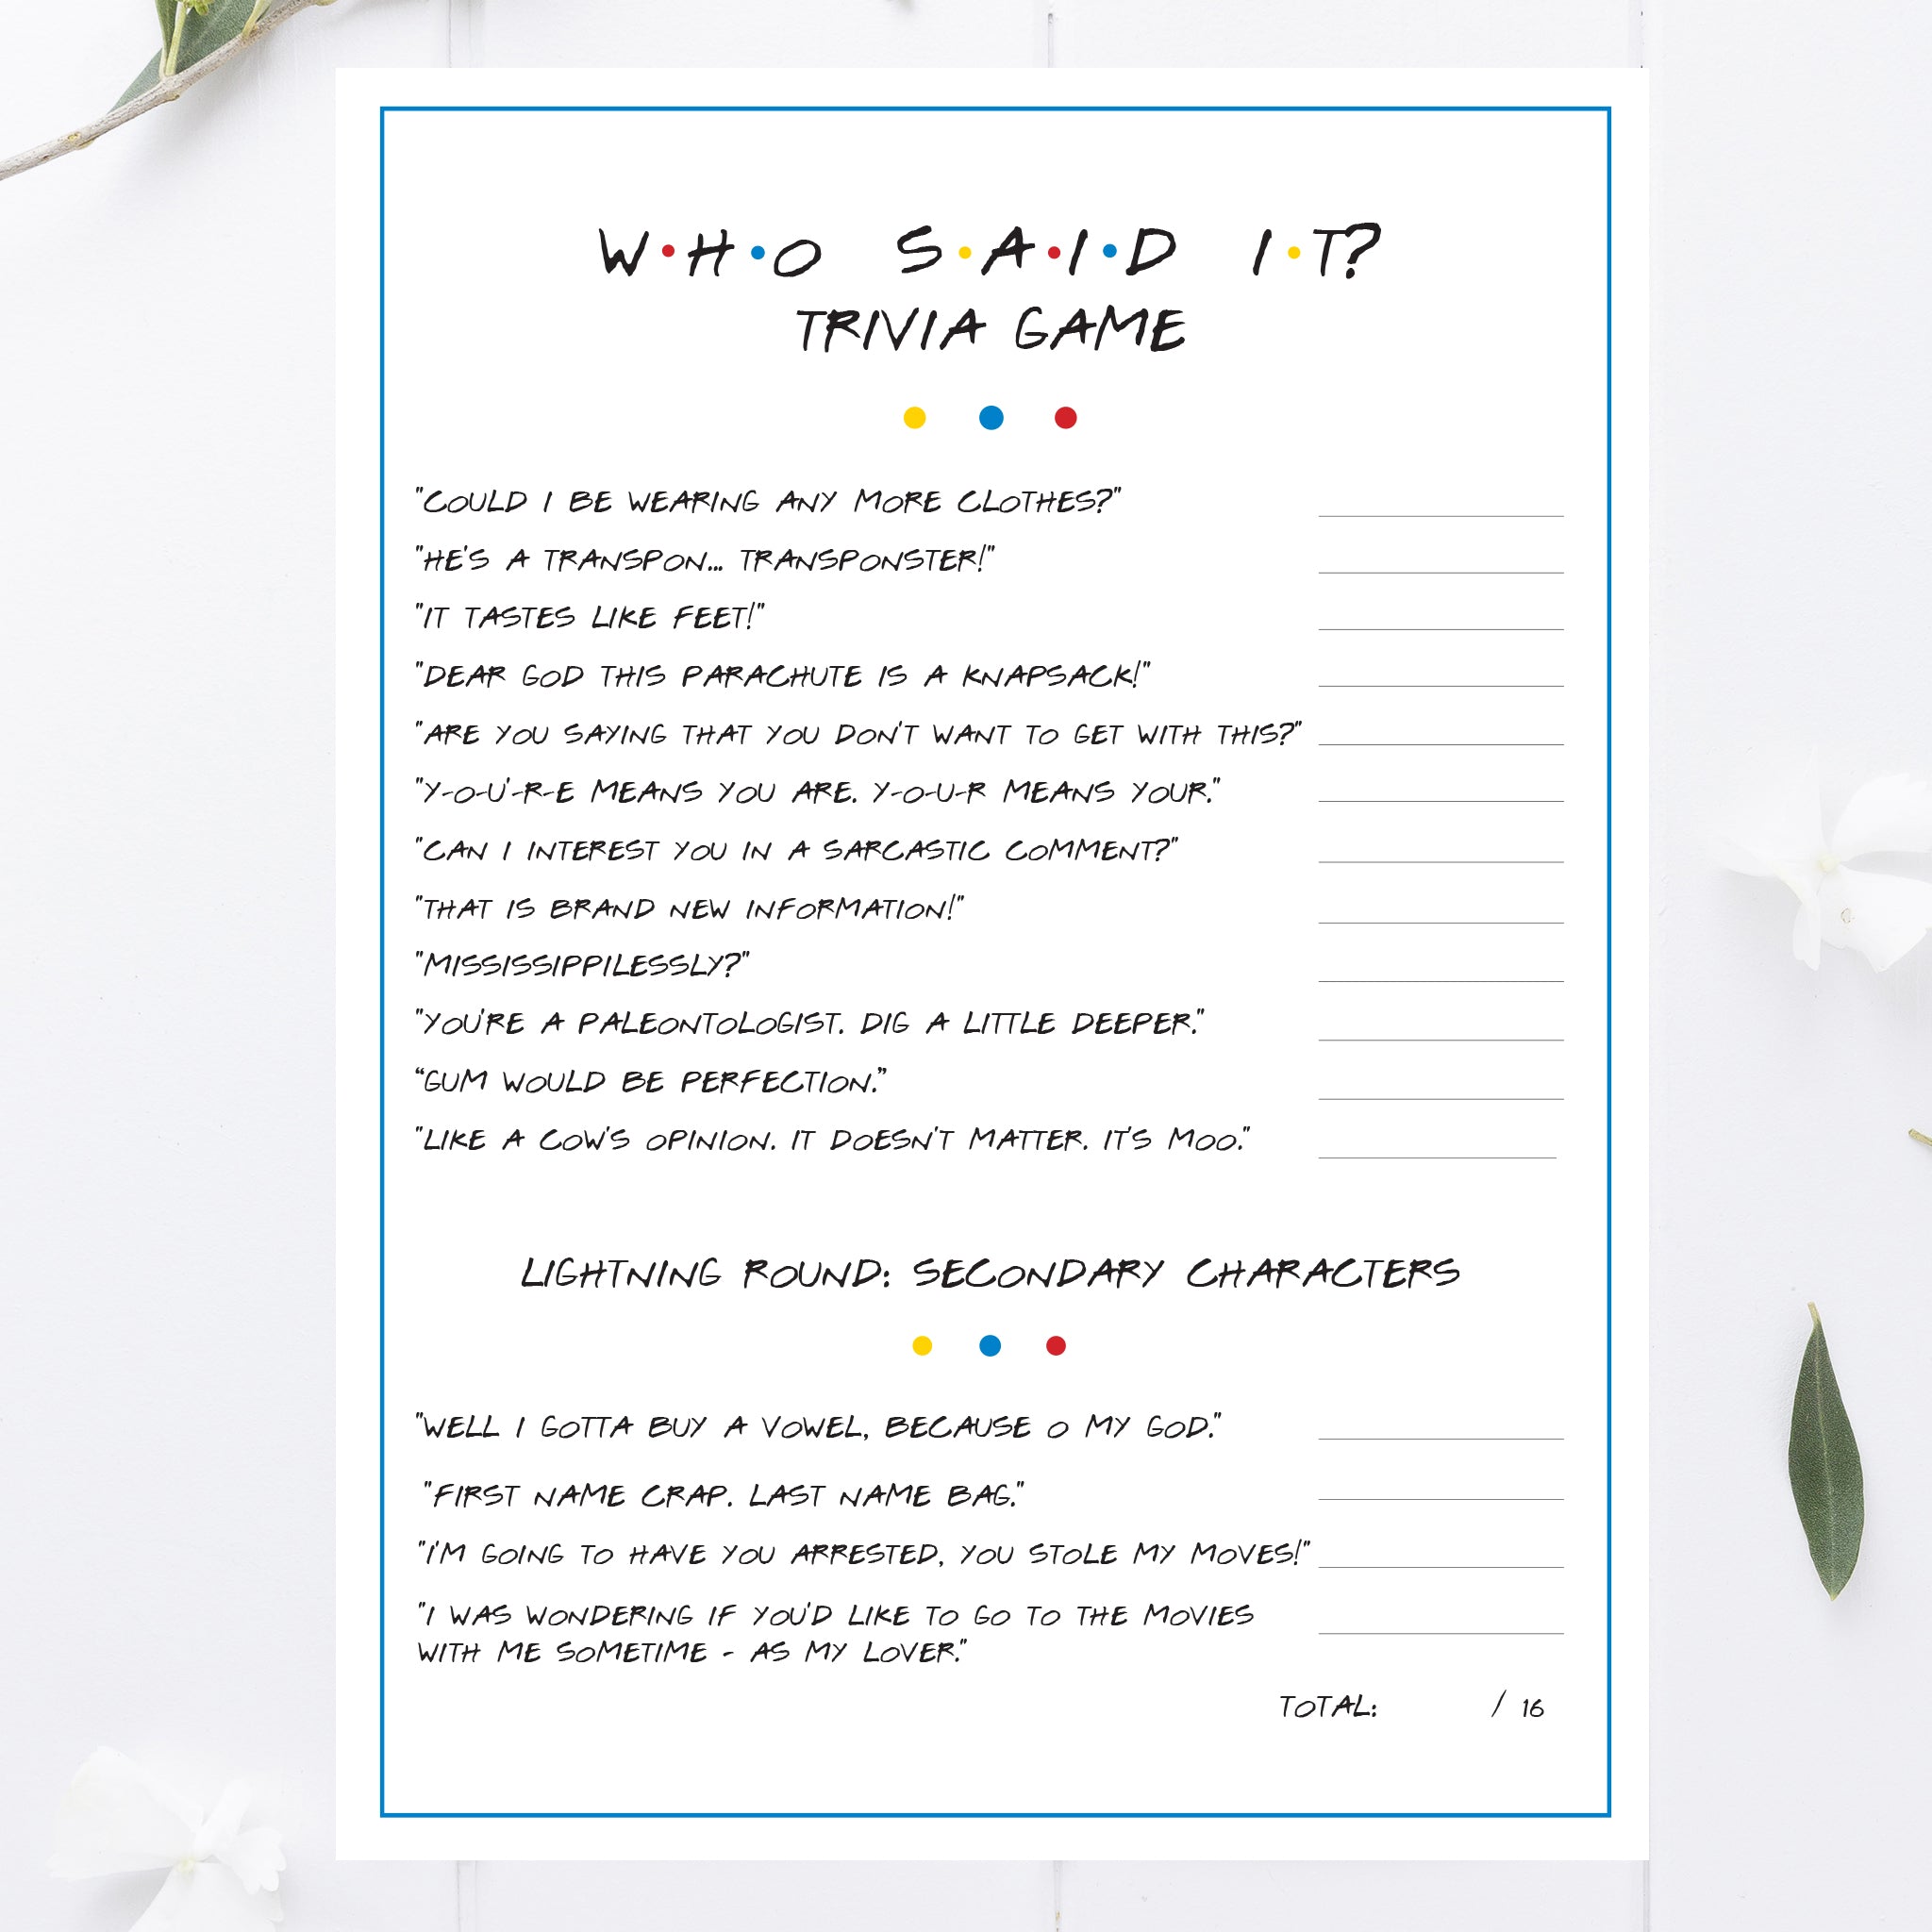 W•H•O S•A•I•D I•T?
TRIVIA GAME
"COULD I BE WEARING ANY MORE CLOTHES?"
"HE'S A TRANSPON... TRANSPONSTER!"
"IT TASTES LIKE FEET!"
"DEAR GOD THIS PARACHUTE IS A KNAPSACK!"
"ARE YOU SAYING THAT YOU DON'T WANT TO GET WITH THIS?"
"Y-O-U'-R-E MEANS YOU ARE. Y-O-U-R MEANS YOUR."
"CAN I INTEREST YOU IN A SARCASTIC COMMENT?"
"THAT IS BRAND NEW INFORMATION!"
"MISSISSIPPILESSLY?"
"YOU'RE A PALEONTOLOGIST. DIG A LITTLE DEEPER."
“GUM WOULD BE PERFECTION.”
"LIKE A COW'S OPINION. IT DOESN'T MATTER. IT'S MOO."
LIGHTNING ROUND: SECONDARY CHARACTERS
"WELL I GOTTA BUY A VOWEL, BECAUSE O MY GOD."
"FIRST NAME CRAP. LAST NAME BAG."
"I'M GOING TO HAVE YOU ARRESTED, YOU STOLE MY MOVES!"
"I WAS WONDERING IF YOU'D LIKE TO GO TO THE MOVIES
WITH ME SOMETIME - AS MY LOVER."
TOTAL: / 16